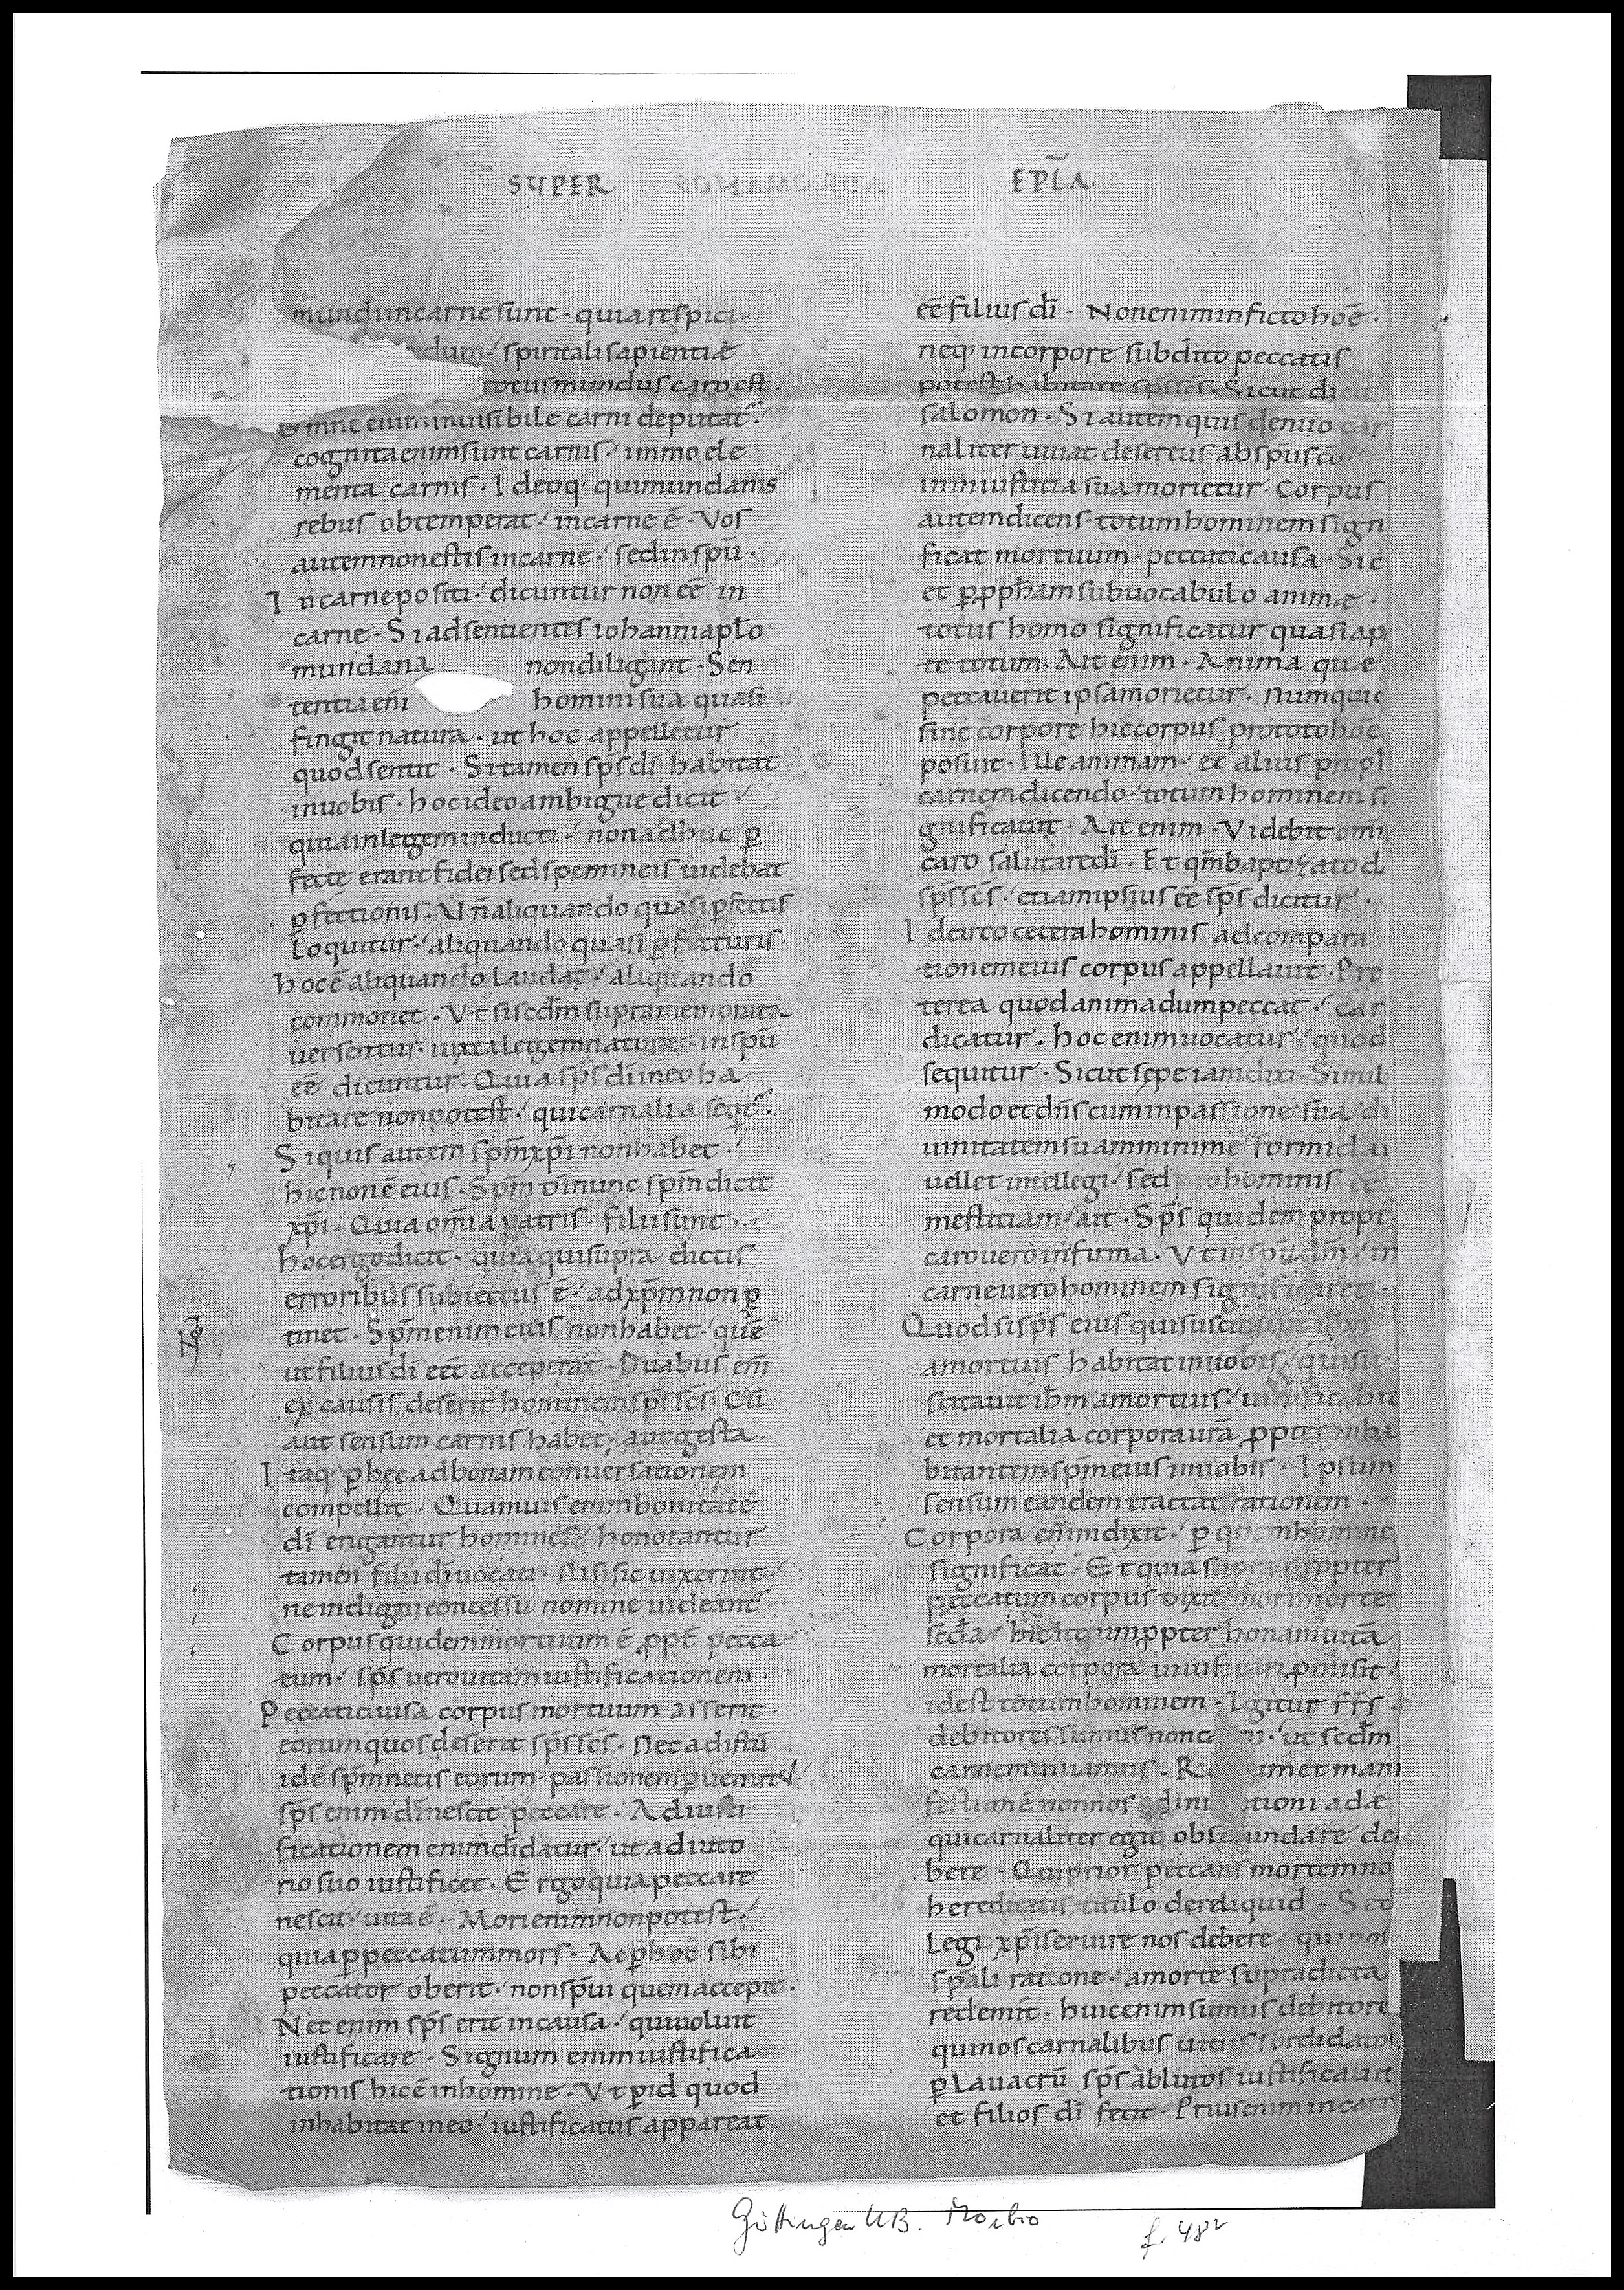 SUPER EPL̄A
mundi in carne sunt · quia respici
dum · spiritali sapientiae
totus mundus caro est ·
omne enim uisibile carni deputat̄ ·
cognita enim sunt carnis · immo ele
menta carnis · Ideoq· qui mundanis
rebus obtemperat · in carne ē · Vos
autem non estis in carne · sed in spū ·
In carne positi · dicuntur non eē in
carne · Si adsentientes iohanni apl̄o
mundana non diligant · Sen
tentia eni homini sua quasi
fingit natura · ut hoc appelletur
quod sentit · Si tamen sp̄s dī habitat
in uobis · hoc ideo ambigue dicit ·
quia in legem inducti · non adhuc ꝑ
fecte erant fidei sed spem in eis uidebat
ꝑfectionis · N̄ aliquando quasi ꝑfectis
loquitur · aliquando quasi ꝑfecturis ·
hoc ē aliquando laudat · aliquando
commonet · Vt si scd̄m supra memorata
uersentur · iuxta legem naturae in spū
eē dicuntur · Quia sp̄s dī in eo ha
bitare non potest · qui carnalia seqt̄ ·
Si quis autem sp̄m xp̄i non habet ·
hic non ē eius · Sp̄m dī nunc sp̄m dicit
xp̄i · Quia om̄ia patris · filii sunt ·
hoc ergo dicit · quia qui supra dictis
erroribus subiectus ē · ad xp̄m non ꝑ
tinet · Sp̄m enim eius non habet · quē
ut filius dī eēt acceperat · Duabus em̄
ex causis deserit hominem sp̄s sc̄s · Cū
aut sensum carnis habet, aut gesta ·
Itaq· ꝑ hęc ad bonam conuersationem
compellit · Quamuis enim bonitate
dī erigantur homines · honorantur
tamen filii dī uocati · Nisi sic uixerint ·
ne indigni concessu nomine uideant̄
Corpus quidem mortuum ē ꝓpt̄ pecca
tum · sp̄s uero uitam iustificationem ·
Peccati causa corpus mortuum asserit ·
eorum quos deserit sp̄s sc̄s · Nec ad istū
id ē sp̄m necis eorum · passionem ꝑuenire ·
sp̄s enim dī nescit peccare · Ad iusti
ficationem enim datur · ut adiuto
rio suo iustificet · Ergo quia peccare
nescit · uita ē · Mori enim non potest ·
quia ꝑ peccatum mors · Ac ꝑ hoc sibi
peccator oberit · non sp̄ui quem accepit ·
Nec enim sp̄s erit in causa · qui uoluit
iustificare · Signum enim iustifica
tionis hic ē in homine · Vt ꝑ id quod
inhabitat in eo · iustificatus appareat
eē filius dī · Non enim in ficto hoē ·
neq· in corpore subdito peccatis
potest habitare sp̄s sc̄s · Sicut di
salomon · Si autem quis denuo car
naliter uiuat desertus ab sp̄u sc̄o
in iniustitia sua morietur · Corpus
autem dicens · totum hominem signi
ficat mortuum · peccati causa · Sic
et ꝑ ꝓph̄am sub uocabulo animae ·
totus homo significatur quasi a p
te totum · Ait enim · Anima quae
peccauerit ipsa morietur · Numquid
sine corpore hic corpus pro toto hoē
posuit · Ille animam · et alius proph
carnem dicendo · totum hominem si
gnificauit · Ait enim · Videbit om̄i
caro salutare dī · Et qm̄ baptizato d
sp̄s sc̄s · etiam ipsius eē sp̄s dicitur ·
Idcirco cetera hominis ad compara
tionem eius corpus appellauit · Pre
terea quod anima dum peccat · car
dicatur · hoc enim uocatur · quod
sequitur · Sicut sepe iam dixi · Simil
modo et dn̄s cum in passione sua di
uinitatem suam minime formidai
uellet intellegi · sed hominis eē
mestitiam · ait · Sp̄s quidem propt
caro uero infirma · Vt in sp̄u dm̄ in
carne uero hominem significaret ·
Quod si sp̄s eius qui suscitauit ih̄m
a mortuis habitat in uobis · qui su
scitauit ih̄m a mortuis · uiuificabit
et mortalia corpora ur̄a ꝓpter inha
bitantem sp̄m eius in uobis · Ipsum
sensum eandem tractat rationem ·
Corpora enim dixit · ꝑ quem homine
significat · Et quia supra propter
peccatum corpus dixit mori morte
scd̄a · hic igitum ꝓpter bonam uitā
mortalia corpora uiuificari ꝓmisit ·
id est totum hominem · Igitur fr̄s ·
debitores sumus non ca ni · ut scd̄m
carnem uiuamus · R um et mani
festum ē non nos adin tioni adae
qui carnaliter egit obse undare de
bere · Qui prior peccans mortem no
hereditatis titulo dereliquid · Sed
legi xp̄i seruire nos debere · qui nos
sp̄ali ratione · a morte supradicta
redemit · huic enim sumus debitore
qui nos carnalibus uitiis sordidatos
ꝑ lauacrū sp̄s ablutos iustificauit
et filios dī fecit · Prius enim in carn
Göttingen UB. Morbio f. 48v